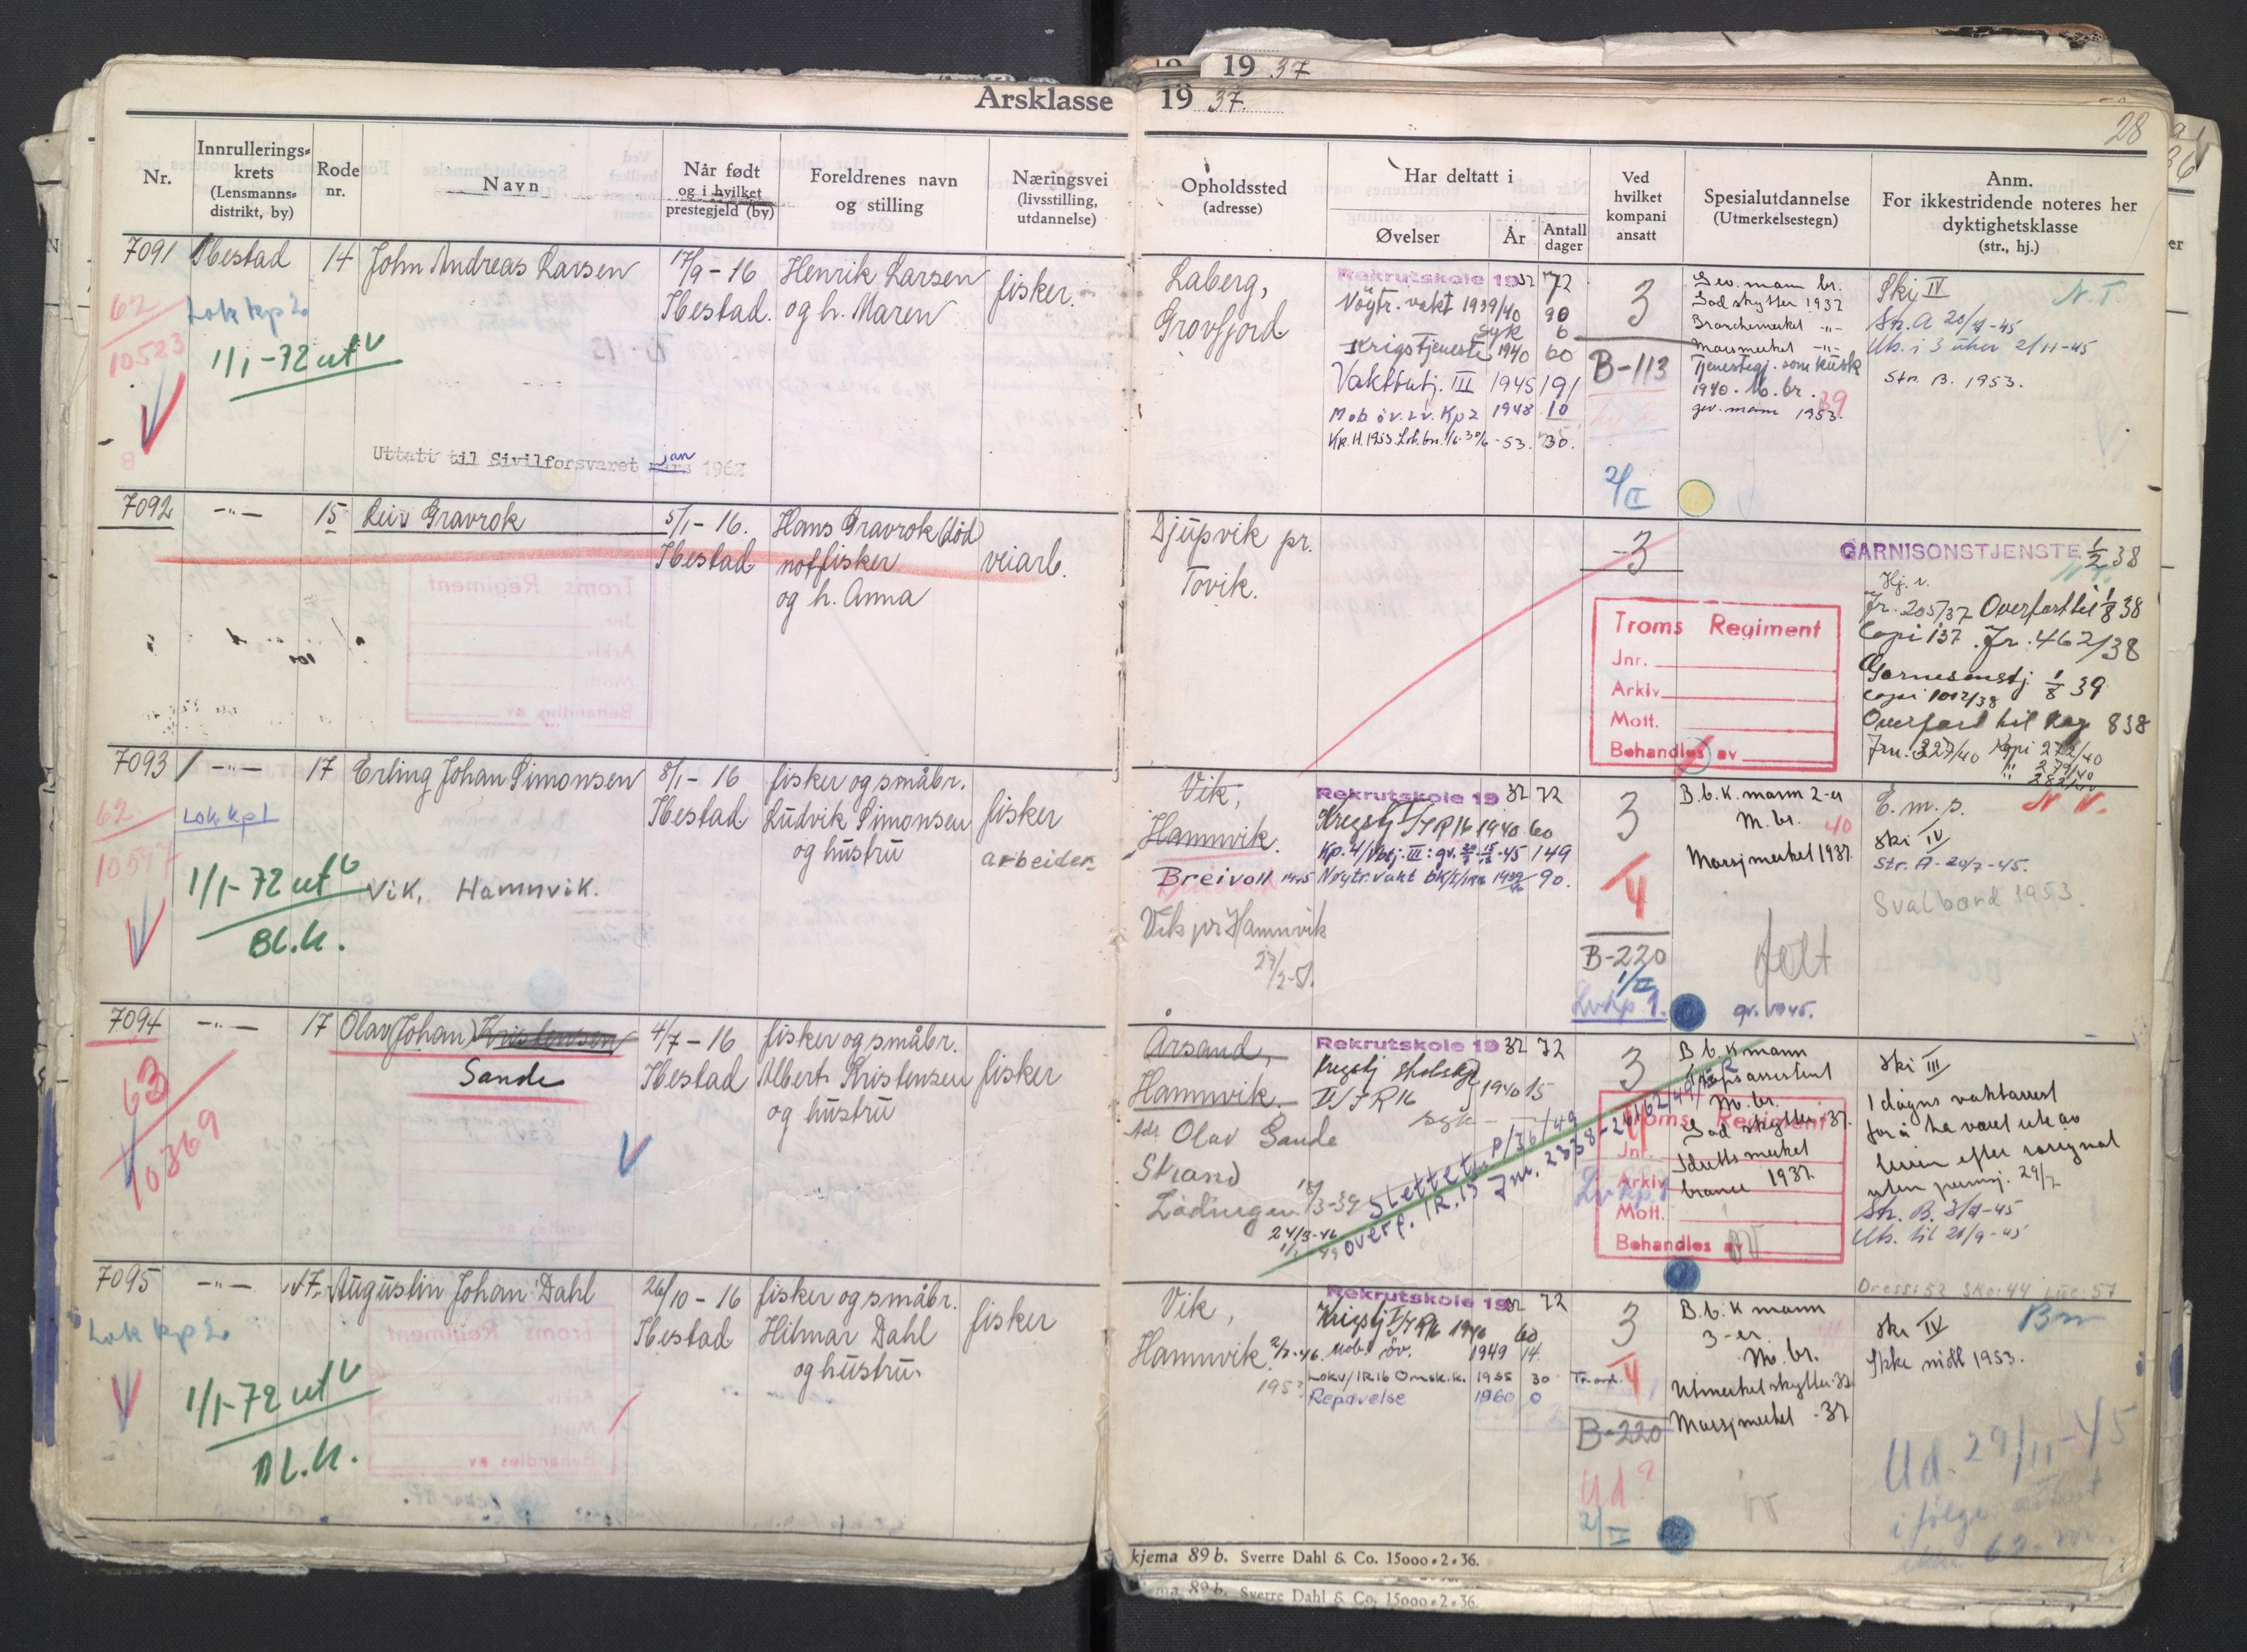 19 37
Årsklasse 19 37.
28
Nr.
Innrullerings-
krets
(Lensmanns-
distrikt, by)
Rode
nr.
Navn
Når født
og i hvilket
prestegjeld (by)
Foreldrenes navn
og stilling
Næringsvei
(livsstilling,
utdannelse)
Opholdssted
(adresse)
Har deltatt i
Øvelser
År
Antall
dager
Ved
hvilket
kompani
ansatt
Spesialutdannelse
(Utmerkelsestegn)
Anm.
For ikkestridende noteres her
dyktighetsklasse
(str., hj.)
7091 Ibestad 14 John Andreas Larsen 17/9 - 16 Henrik Larsen fisker.
Ibestad. og h. Maren
62
10523
Lok kp 2.
1/1-72 ut
Uttatt til Sivilforsvaret mars jan 1962
Laberg,
Grovfjord.
Rekrutskole 1937 72
Nøytr. vakt 1939/40 90
syk 6
Krigstjeneste 1940 60
Vaktbtj. III 1945 191
Mob øv. Lv. Kp 2 1948 10
Kp. H. 1953 30.
3
B-113
2/II
Gev. mann br.
God skytter 1937
Bransjemerket -"-
Marsjmerket -"-
Tjenestegj. som kusk
1940. M. br. 39
gev. mann 1953.
Ski IV N.T.
Str. A 20/7-45
Str. B. 1953.
7092 -"- 15 Leiv Gravrok 5/1 - 16. Hans Gravrok (død)
Ibestad notfisker veiarb.
og h. Anna
Djupvik pr.
Tovik.
3
Troms Regiment
Jnr.
Arkiv
Mott.
Behandles av
GARNISONSTJENSTE 1/2 38
Hj. v.
Jr. 205/37 Overført til 1/8 38
Copi 137. Jr. 462/38
Garnisonstj. 1/8 39
Copi 1012/38
Jnr. 327/40 Kopi 272/40
" 279/40
7093 -"- 17 Erling Johan Simonsen 8/1 - 16 fisker og småbr.
Ibestad Ludvik Simonsen fisker
og hustru arbeider
62
10597
Lok. kp 1
1/1-72 ut
Bl.k.
Vik, Hamnvik.
Vik,
Hamnvik.
Breivoll 1945
Vik pr Hamnvik
27/2-51.
Rekrutskole 19 37 72
Krigstj I/IR16 1940 60
Nøytr. vakt 90.
3
4
B-220
1/II
Lvkp 1.
B.b.K. mann 2-er
M. br. 40
Marsjmerket 1937
felt
gr. 1945.
E. m. p. N. V.
Ski IV
Str. A - 20/7-45.
Svalbard 1953.
7094 -"- 17 Olav (Johan) Kristensen 4/7 - 16 fisker og småbr.
Sande Ibestad Albert Kristensen fisker
og hustru
63
10369
Årsand,
Hamnvik.
Adr. Olav Sande
Strand
Lødingen 18/3-39
24/3-46
Rekrutskole 19 37 72
II/IR16 1940 15
syk
Slettet P/36/49
overf. IR.15 Jnr. 2338-26/62/49
3
4
Lv kp 1
B b. K mann
M. br.
God skytter - 37.
Idrettsmerket
bronse 1937
Troms Regiment
Jnr.
Arkiv
Mott.
Behandles av
Ski III
1 døgns vaktarrest
for å ha været ute av
leiren efter rosignal
uten permisj. 29/7
Str. B. 3/9-45
Utb. til 21/9-45
7095 -"- 17. Augustin Johan Dahl 26/10 - 16 fisker og småbr.
Ibestad Hilmar Dahl fisker
og hustru.
Lok kp 2.
1/1-72 ut
Bl.k.
Vik,
Hamnvik. 2/2-46.
Rekrutskole 19 37 72
Krigstj I/IR16 1940 60
Mob. øv. 1949 14.
Lokv/IR16 Omsk.k. 1955 30
Repøvelse 1960 0
3
4
Tr.ord.
B-220
Ud?
2/II
B. b. K mann
3-er
M. br.
Utmerket skytter - 37
Marsjmerket - 37
Dress: 52 Sko: 44 Lue: 57
Ski IV
Ikke møtt 1953.
Ud. 29/11-45
i følge
kjema 89 b. Sverre Dahl & Co. 15000-2-36.
89 b. Sverre Dahl & Co. 15000-2-36.